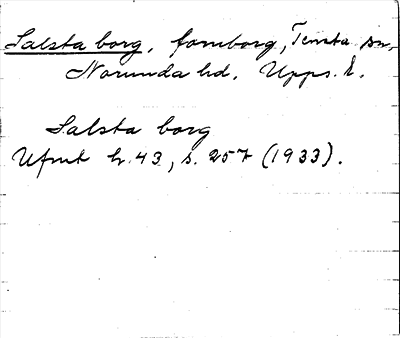 Salsta borg, fornborg, Tensta sn,
Norunda hd, Upps. l.
Salsta borg
Ufmt h. 43, s. 257 (1933).